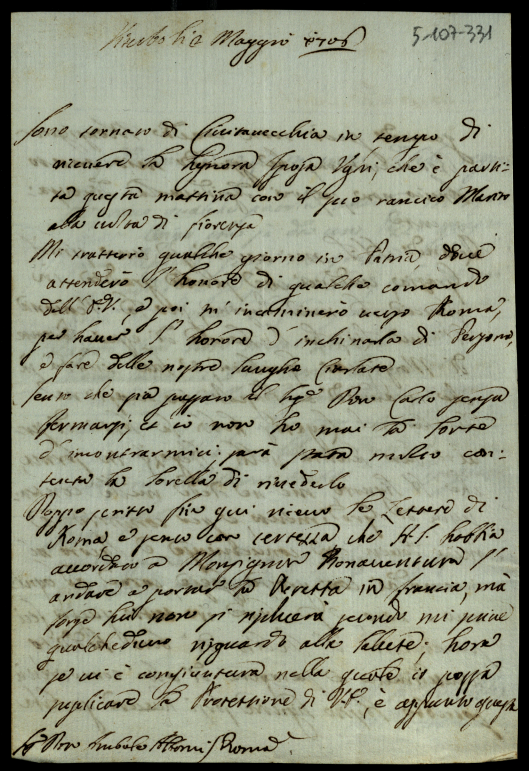 Maggio 1706
5-107-331
Sono tornato di Civitavecchia in tempo di
ricevere la Signora Sposa Ugri, che è parti-
ta questa mattina con il suo Marito
alla volta di fiorenza
Mi tratterrò qualche giorno in Patria dove
attenderò l'honore di qualche comando
dell' e poi m'incaminerò verso Roma,
per haver l'honore d'inchinarla di Persona,
e fare delle nostre lunghe Ciarlate
sento che sia passato il Don Carlo senza
fermarsi, et io non ho mai la sorte
d'incontrarmici. sarà stata molto con-
tenta la sorella di rivederlo
Doppo scritto fin qui ricevo le Lettere di
Roma, e sento con certezza che habbia
accordato a Monsignor Bonaventura l'
andare a portar la Beretta in francia, mà
forse lui non si secondo mi scrive
qualcheduno riguardo alla salute; hora
se vi è congiontura nella quale io possa
suplicare la Protettione di è appunto questa
Don Annibale Albani Roma